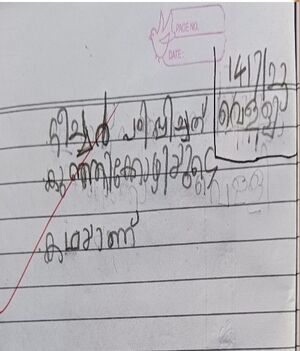 PAGE NO.
DATE:
14/7/22
വെള്ളി
ടീച്ചർ പഠിപ്പിച്ചത്
കുഞ്ഞിക്കോഴിയുടെ
കഥയാണ്